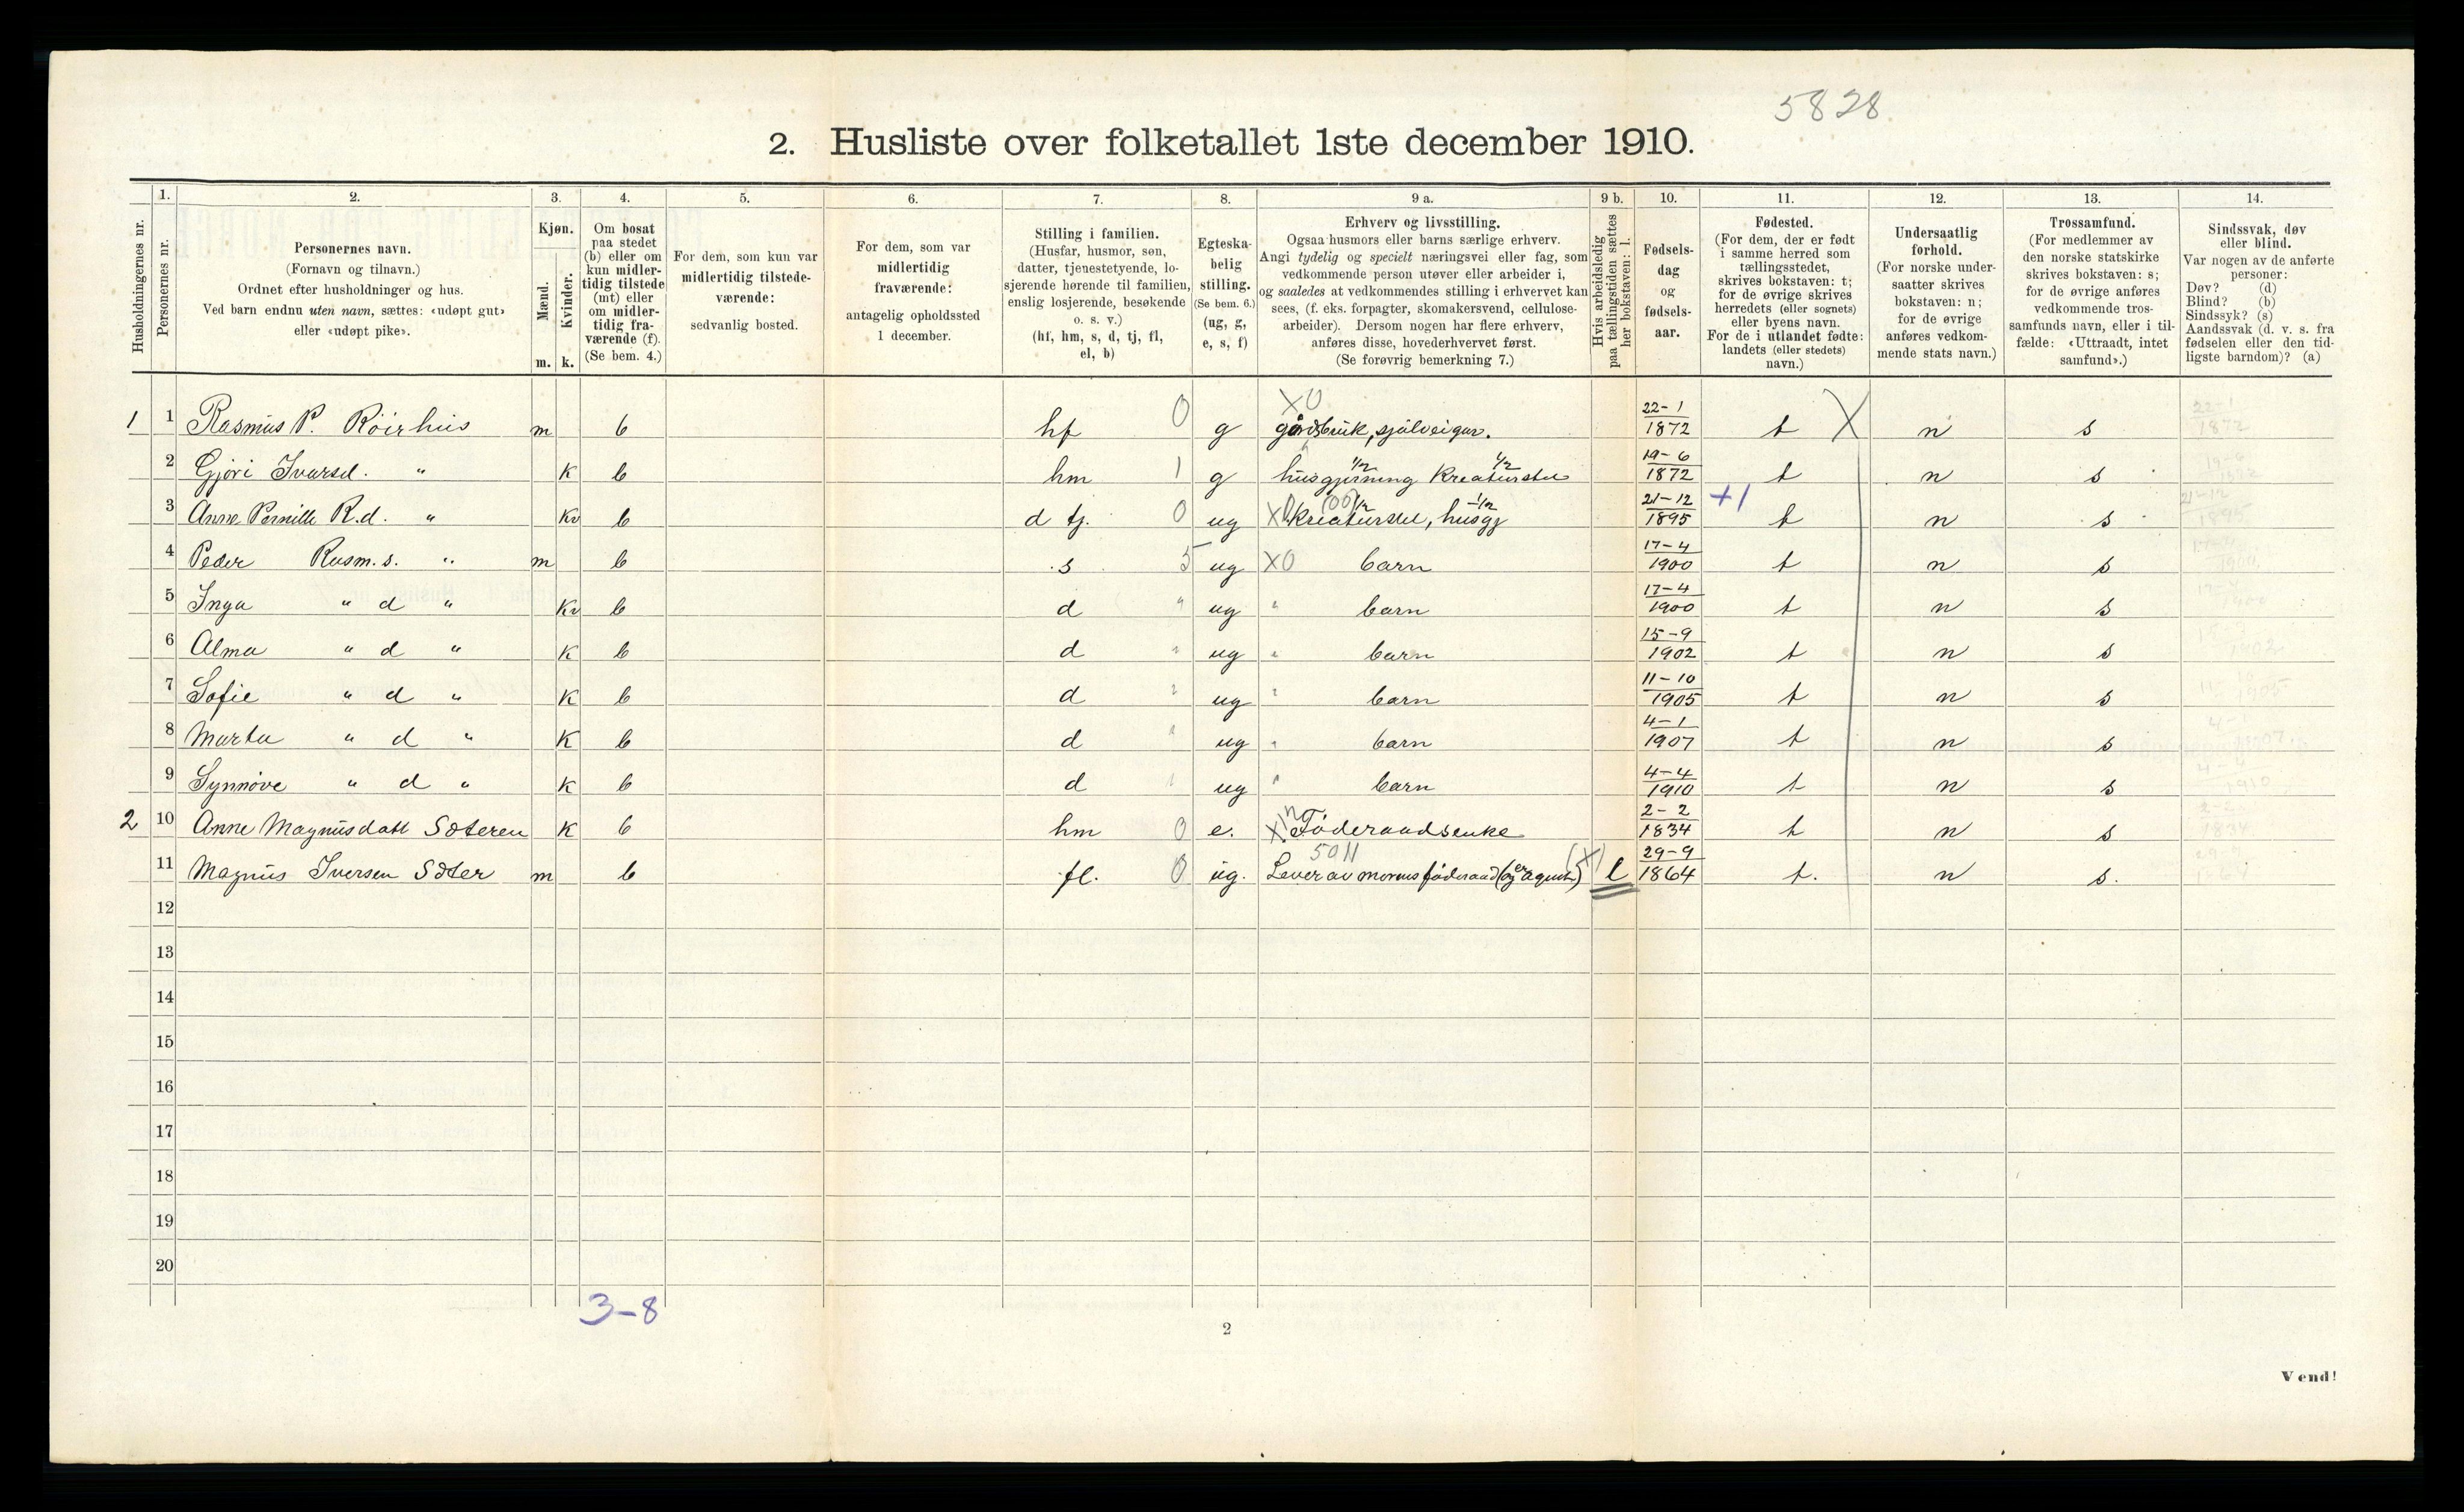 5828
2. Husliste over folketallet 1ste december 1910.
1. 2. 3. 4. 5. 6. 7. 8. 9 a. 9 b. 10. 11. 12. 13. 14.
Husholdningernes nr.
Personernes nr.
Personernes navn.
(Fornavn og tilnavn.)
Ordnet efter husholdninger og hus.
Ved barn endnu uten navn, sættes: «udøpt gut»
eller «udøpt pike».
Kjøn.
Mænd.
Kvinder.
m. k.
Om bosat
paa stedet
(b) eller om
kun midler-
tidig tilstede
(mt) eller
om midler-
tidig fra-
værende (f).
(Se bem. 4.)
For dem, som kun var
midlertidig tilstede-
værende:
sedvanlig bosted.
For dem, som var
midlertidig
fraværende:
antagelig opholdssted
1 december.
Stilling i familien.
(Husfar, husmor, søn,
datter, tjenestetyende, lo-
sjerende hørende til familien,
enslig losjerende, besøkende
o. s. v.)
(hf, hm, s, d, tj, fl,
el, b)
Egteska-
belig
stilling.
(Se bem. 6.)
(ug, g,
e, s, f)
Erhverv og livsstilling.
Ogsaa husmors eller barns særlige erhverv.
Angi tydelig og specielt næringsvei eller fag, som
vedkommende person utøver eller arbeider i,
og saaledes at vedkommendes stilling i erhvervet kan
sees, (f. eks. forpagter, skomakersvend, cellulose-
arbeider). Dersom nogen har flere erhverv,
anføres disse, hovederhvervet først.
(Se forøvrig bemerkning 7.)
Hvis arbeidsledig
paa tællingstiden sættes
her bokstaven: l.
Fødsels-
dag
og
fødsels-
aar.
Fødested.
(For dem, der er født
i samme herred som
tællingsstedet,
skrives bokstaven: t;
for de øvrige skrives
herredets (eller sognets)
eller byens navn.
For de i utlandet fødte:
landets (eller stedets)
navn.)
Undersaatlig
forhold.
(For norske under-
saatter skrives
bokstaven: n;
for de øvrige
anføres vedkom-
mende stats navn.)
Trossamfund.
(For medlemmer av
den norske statskirke
skrives bokstaven: s;
for de øvrige anføres
vedkommende tros-
samfunds navn, eller i til-
fælde: «Uttraadt, intet
samfund».)
Sindssvak, døv
eller blind.
Var nogen av de anførte
personer:
Døv? (d)
Blind? (b)
Sindssyk? (s)
Aandssvak (d. v. s. fra
fødselen eller den tid-
ligste barndom)? (a)
1 1 Rasmus P. Röirhus m b hf 0 g X0 gårdsbruk, sjölveigar. 22-1 1872 t X n s
2 Gjöri Ivarsd. " k b hm 1 g husgjerning 1/2 Kreaturstel 1/2 19-6 1872 t n s
3 Anne Pernille R.d. " Kv b d tj. 0 ug X Kreaturstel 1/2, husgj 1/2 21-12 1895 +1 t n s
4 Peder Rasm. s. " m b s 5 ug X0 barn 17-4 1900 t n s
5 Inga " d " Kv b d " ug " barn 17-4 1900 t n s
6 Alma " d " K b d " ug " barn 15-9 1902 t n s
7 Sofie " d " K b d " ug " barn 11-10 1905 t n s
8 Marta " d " K b d " ug " barn 4-1 1907 t n s
9 Synnöve " d " K b d " ug " barn 4-4 1910 t n s
2 10 Anne Magnusdatt Sæteren K b hm 0 e. X Föderaadsenke 2-2 1834 t n s
11 Magnus Iversen Sæter m b fl. 0 ug. 5011 Lever av morens föderaad (og er agent) (X) l 29-9 1864 t. n s.
12
13
14
15
16
17
18
19
20
3-8
2
Vend!